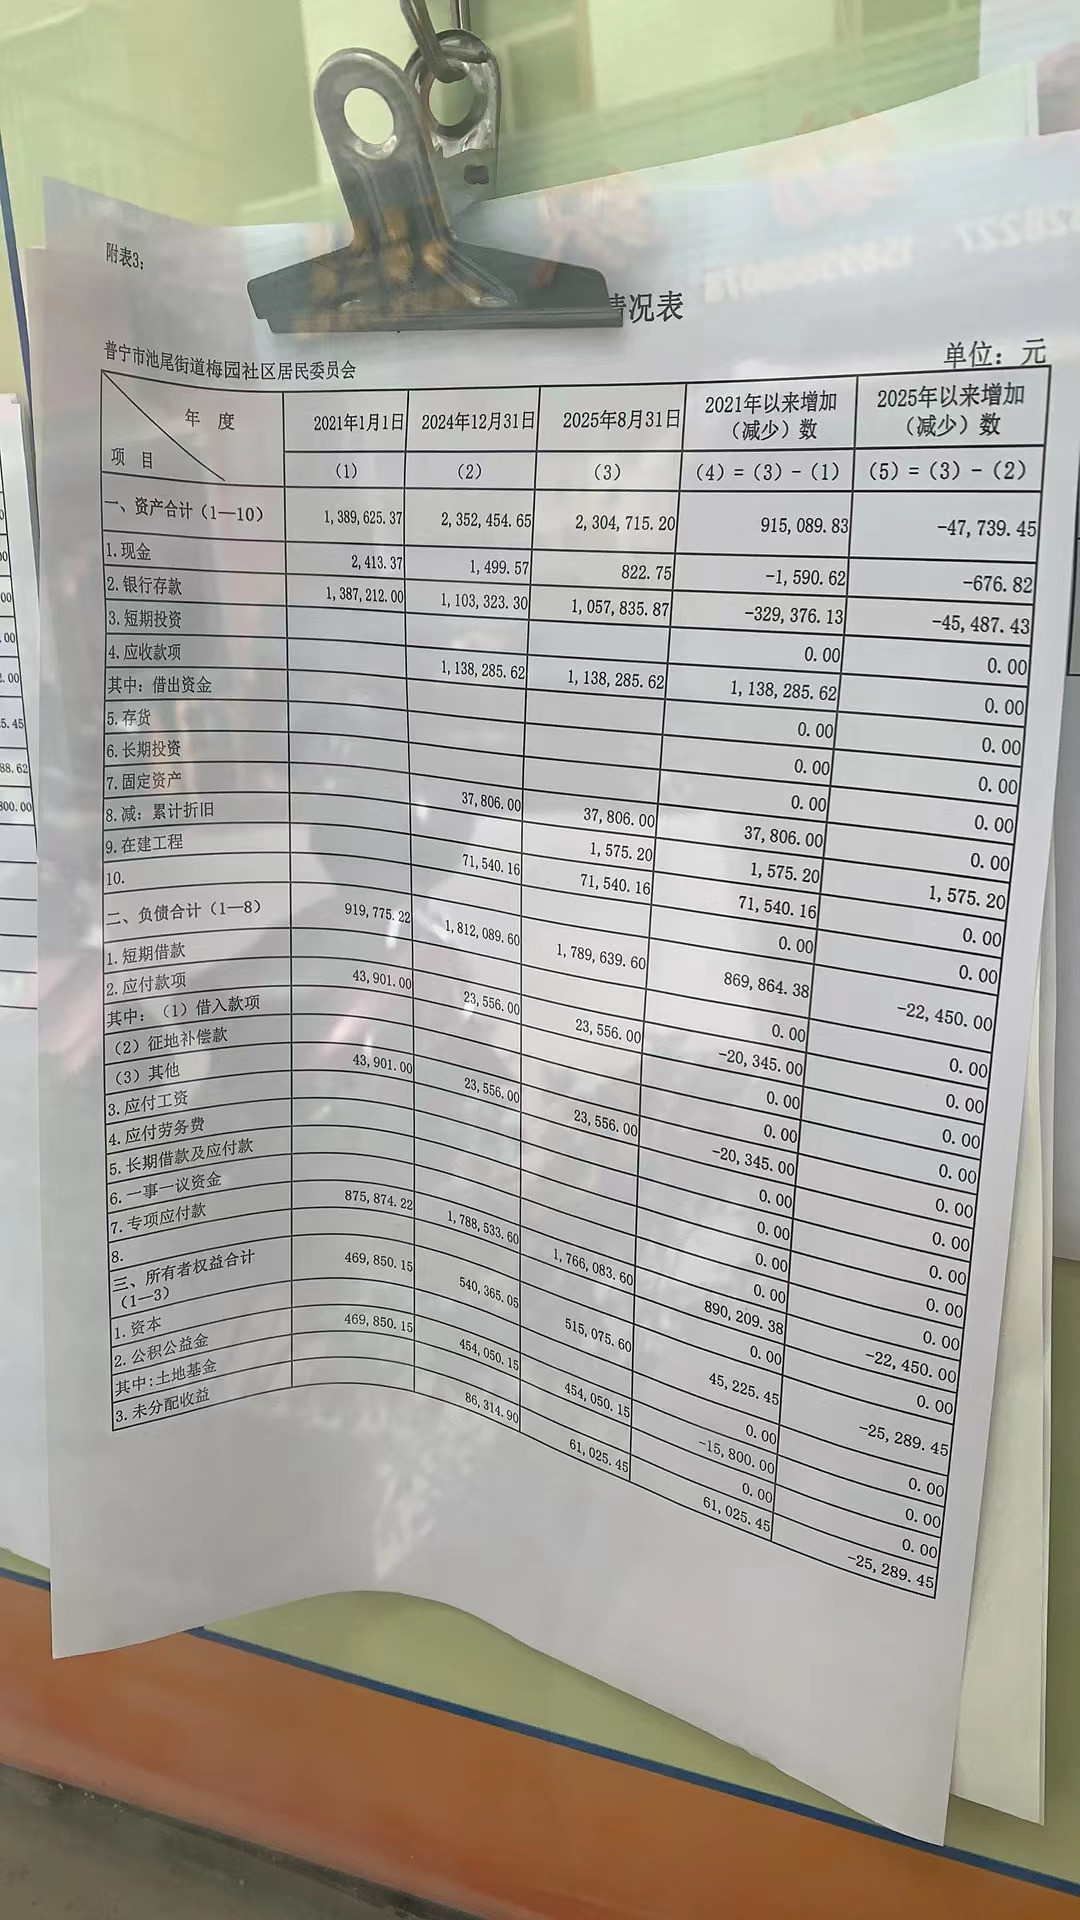 附表3:
情况表
普宁市池尾街道梅园社区居民委员会
单位: 元
年 度 项 目 2021年1月1日 2024年12月31日 2025年8月31日 2021年以来增加(减少)数 2025年以来增加(减少)数
(1) (2) (3) (4)=(3)-(1) (5)=(3)-(2)
一、资产合计(1—10) 1,389,625.37 2,352,454.65 2,304,715.20 915,089.83 -47,739.45
1.现金 2,413.37 1,499.57 822.75 -1,590.62 -676.82
2.银行存款 1,387,212.00 1,103,323.30 1,057,835.87 -329,376.13 -45,487.43
3.短期投资 0.00 0.00
4.应收款项 1,138,285.62 1,138,285.62 1,138,285.62 0.00
其中: 借出资金 0.00 0.00
5.存货 0.00 0.00
6.长期投资 0.00 0.00
7.固定资产 37,806.00 37,806.00 37,806.00 0.00
8.减: 累计折旧 1,575.20 1,575.20 1,575.20
9.在建工程 71,540.16 71,540.16 71,540.16 0.00
10. 0.00 0.00
二、负债合计(1—8) 919,775.22 1,812,089.60 1,789,639.60 869,864.38 -22,450.00
1.短期借款 0.00 0.00
2.应付款项 43,901.00 23,556.00 23,556.00 -20,345.00 0.00
其中: (1)借入款项 0.00 0.00
(2)征地补偿款 0.00 0.00
(3)其他 43,901.00 23,556.00 23,556.00 -20,345.00 0.00
3.应付工资 0.00 0.00
4.应付劳务费 0.00 0.00
5.长期借款及应付款 0.00 0.00
6.一事一议资金 0.00 0.00
7.专项应付款 875,874.22 1,788,533.60 1,766,083.60 890,209.38 -22,450.00
8. 0.00 0.00
三、所有者权益合计(1—3) 469,850.15 540,365.05 515,075.60 45,225.45 -25,289.45
1.资本 0.00 0.00
2.公积公益金 469,850.15 454,050.15 454,050.15 -15,800.00 0.00
其中:土地基金 0.00 0.00
3.未分配收益 86,314.90 61,025.45 61,025.45 -25,289.45